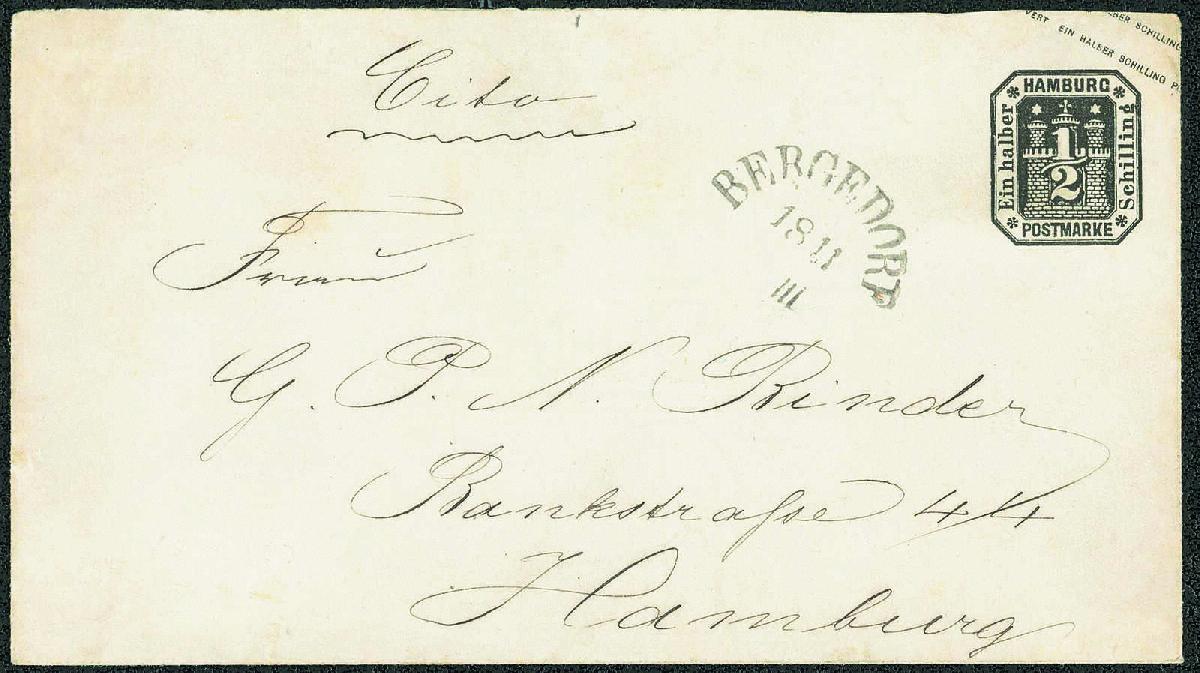 BER SCHILLING
VERT EIN HALBER SCHILLING P
HAMBURG
Ein halber
1/2
Schilling
POSTMARKE
Cito
BERGEDORF
18 11
III
Frau
G. P. N. Binder
Bankstraſse 44
Hamburg